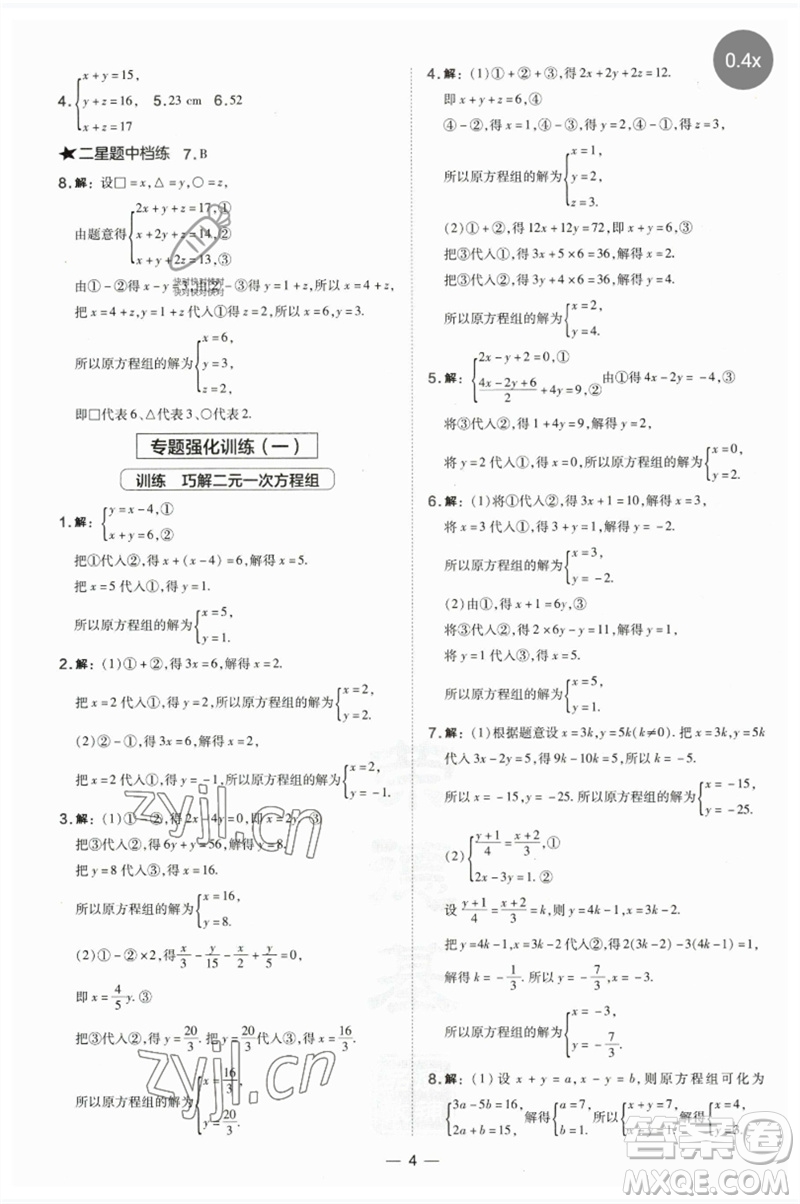 0.4x
4. {x+y=15,
y+z=16, 5.23 cm 6.52
x+z=17
★二星题中档练 7.B
8.解：设□=x,△=y,○=z,
由题意得{2x+y+z=17,①
x+2y+z=14,②
x+y+2z=13,③
由①-②得 x-y=3,由②-③得 y=1+z,所以 x=4+z,
把 x=4+z,y=1+z 代入①得 z=2,所以 x=6,y=3.
所以原方程组的解为{x=6,
y=3,
z=2,
即□代表 6、△代表 3、○代表 2.
专题强化训练(一)
训练 巧解二元一次方程组
1.解：{y=x-4,①
x+y=6,②
把①代入②,得 x+(x-4)=6,解得 x=5.
把 x=5 代入①,得 y=1.
所以原方程组的解为{x=5,
y=1.
2.解：(1)①+②,得 3x=6,解得 x=2.
把 x=2 代入①,得 y=2,所以原方程组的解为{x=2,
y=2.
(2)①-②,得 3x=6,解得 x=2.
把 x=2 代入①,得 y=-1,所以原方程组的解为{x=2,
y=-1.
3.解：(1)①-②,得 2x-4y=0,即 x=2y. ③
把③代入②,得 6y+y=56,解得 y=8.
把 y=8 代入③,得 x=16.
所以原方程组的解为{x=16,
y=8.
(2)①-②×2,得 x/3-y/15-x/2+y/5=0,
即 x=4/5y.③
把③代入②,得 y=20/3. 把 y=20/3代入③,得 x=16/3.
所以原方程组的解为{x=16/3,
y=20/3.
4.解：(1)①+②+③,得 2x+2y+2z=12.
即 x+y+z=6,④
④-②,得 x=1,④-③,得 y=2,④-①,得 z=3,
所以原方程组的解为{x=1,
y=2,
z=3.
(2)①+②,得 12x+12y=72,即 x+y=6,③
把③代入①,得 3x+5×6=36,解得 x=2.
把③代入②,得 3y+4×6=36,解得 y=4.
所以原方程组的解为{x=2,
y=4.
5.解：{2x-y+2=0,①
(4x-2y+6)/2+4y=9,② 由①得 4x-2y=-4,③
将③代入②,得 1+4y=9,解得 y=2.
将 y=2 代入①,得 x=0,所以原方程组的解为{x=0,
y=2.
6.解：(1)将①代入②,得 3x+1=10,解得 x=3,
将 x=3 代入①,得 y=-2.
所以原方程组的解为{x=3,
y=-2.
(2)由①,得 x+1=6y,③
将③代入②,得 2×6y-y=11,解得 y=1.
将 y=1 代入③,得 x=5.
所以原方程组的解为{x=5,
y=1.
7.解：(1)根据题意设 x=3k,y=5k(k≠0). 把 x=3k,y=5k
代入 3x-2y=5,得 9k-10k=5,所以 k=-5.
所以 x=-15,y=-25,所以原方程组的解为{x=-15,
y=-25.
(2){(y+1)/4=(x+2)/3,①
2x-3y=1. ②
设 (y+1)/4=(x+2)/3=k,则 y=4k-1,x=3k-2.
把 y=4k-1,x=3k-2 代入②,得 2(3k-2)-3(4k-1)=1,
解得 k=-1/3. 所以 y=-7/3,x=-3.
所以原方程组的解为{x=-3,
y=-7/3.
8.解：(1)设 x+y=a,x-y=b,则原方程组可化为
{3a-5b=16, 解得{a=7, 所以{x+y=7, 解得{x=4,
2a+b=15, b=1, x-y=1, y=3.
4
快对快对快对
快对快对快对
zyjl.cn
zyjl.cn
答案圈
MXQE.COM